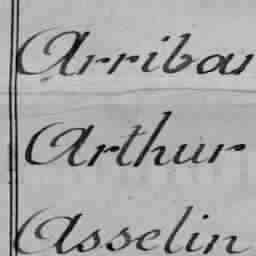 Arribas
Arthur
Asselin